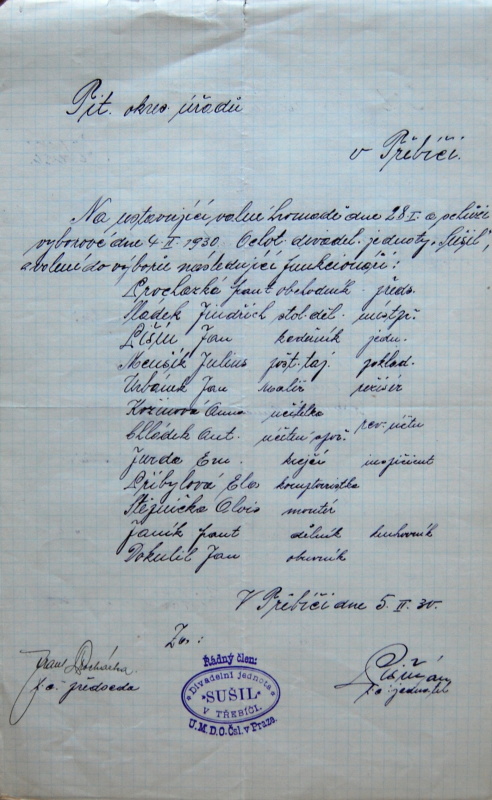 Slt. okres. úřadu
v Třebíči.
Na ustavující valné hromadě dne 28.I. a schůzi
výborové dne 4. II. 1930. Ochot. divadel. jednoty "Sušil",
zvoleni do výboru následující funkcionáři:
Procházka Frant. obchodník předs.
Sladek Jindřich stol. děl. místpř.
Lišin Jan jedn.
Menšík Julius pošt. taj. poklad.
Urbánek Jan malíř režisér
Kožinová Anna učitelka
Chládek Ant. rev. účtu
Jurda Em. krejčí inspicient
Přibylová Ela kontoristka
Stejnička Alois montér
Janík Frant dělník knihovník
Dokulil Jan obuvník
V Třebíči dne 5. II. 30.
Za:
Frant. Procházka
t. č. předseda
Lišin Jan
t. č. jednatel
Řádný člen:
Divadelní jednota
"SUŠIL"
V TŘEBÍČI.
U.M.D.O.Čsl. v Praze.